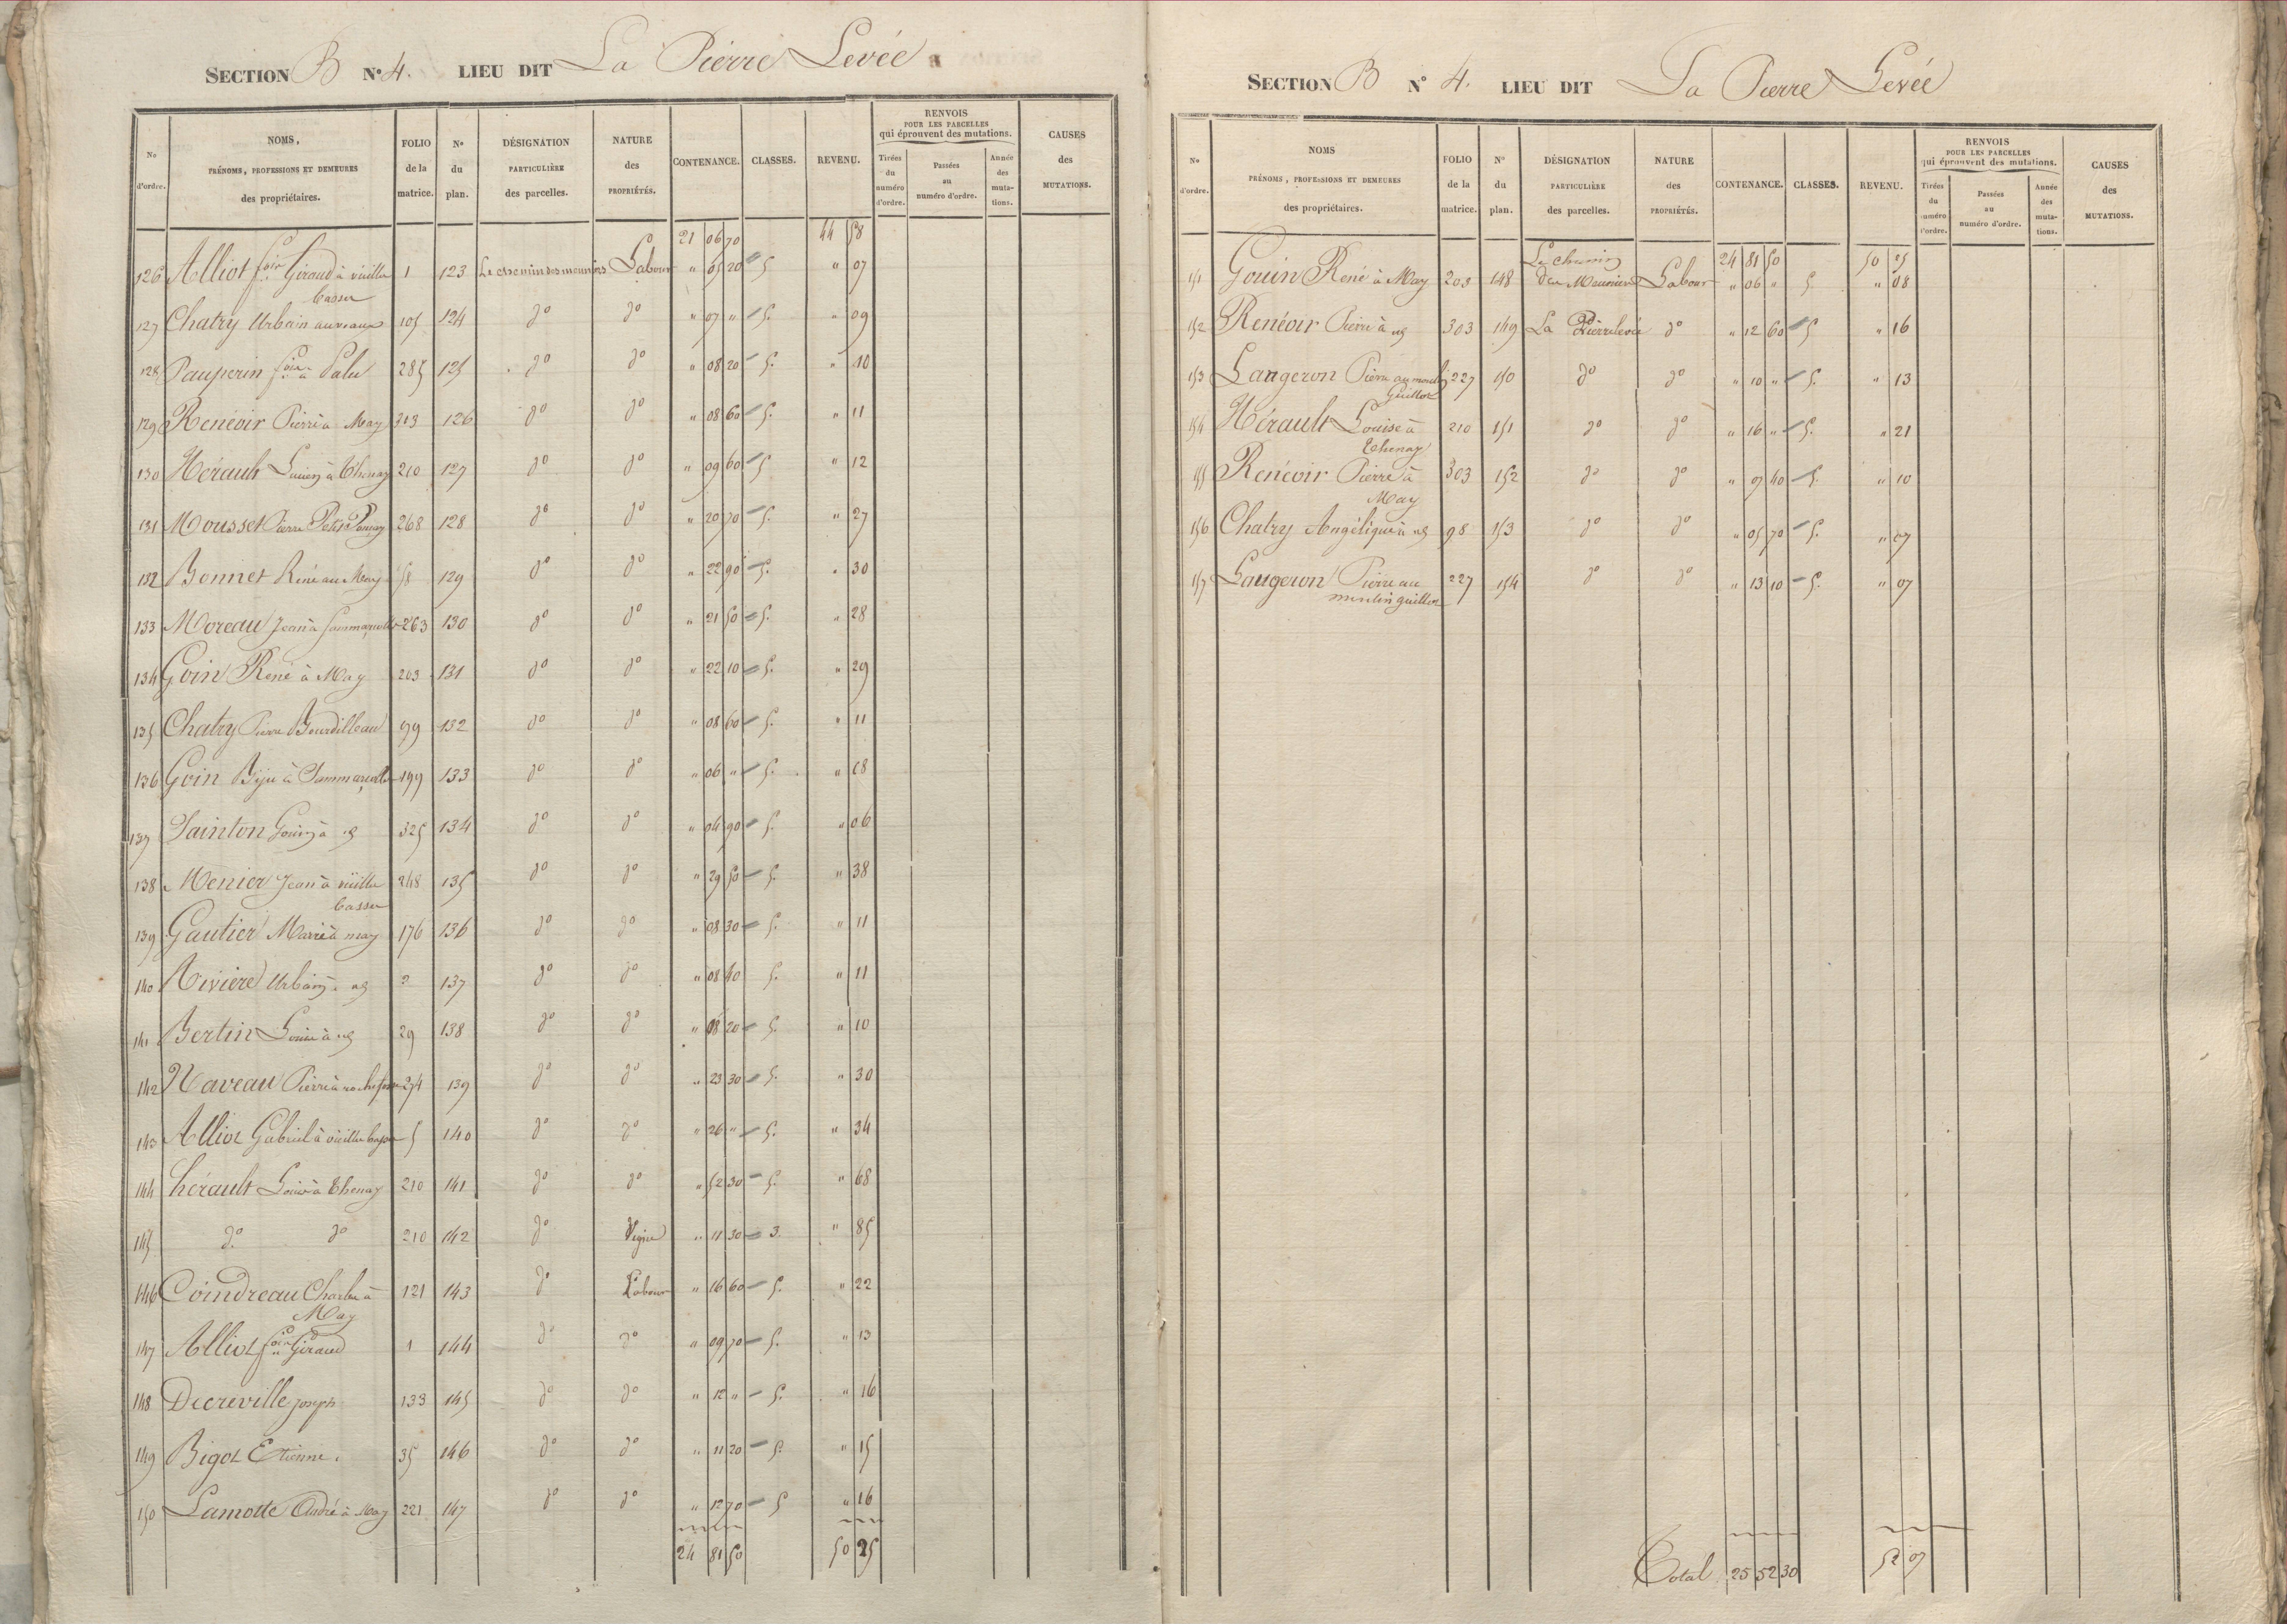 SECTION B N° 4. LIEU DIT La Pierre Levée
N° d'ordre. NOMS, PRÉNOMS, PROFESSIONS ET DEMEURES des propriétaires. FOLIO de la matrice. N° du plan. DÉSIGNATION PARTICULIÈRE des parcelles. NATURE des PROPRIÉTÉS. CONTENANCE. CLASSES. REVENU. RENVOIS POUR LES PARCELLES qui éprouvent des mutations. Tirées du numéro d'ordre. Passées au numéro d'ordre. Année des muta-tions. CAUSES des MUTATIONS.
21 06 70 44 58
126 Alliot Giraud à vieille 1 123 Le chemin des meuniers Labour " 05 20 5 " 07
basse
127 Chatry Urbain 105 124 do do " 07 " 5. " 09
128 Pauperin à Palu 285 125 do do " 08 20 5. " 10
129 Renéoir Pierre à May 303 126 do do " 08 60 5. " 11
130 Hérault Louis à Thenay 210 127 do do " 09 60 5 " 12
131 Mousset Pierre Petit 268 128 do do " 20 70 5. " 27
132 Bonnet René au May 58 129 do do " 22 90 5. " 30
133 Moreau Jean à Sammarcolle 263 130 do do " 21 50 5. " 28
134 Goin René à May 203 131 do do " 22 10 5. " 29
135 Chatry Pierre Bourdilleau 99 132 do do " 08 60 5. " 11
136 Goin à Sammarcolle 199 133 do do " 06 " 5. " 08
137 Sainton à 325 134 do do " 04 90 5. " 06
138 Menier Jean à vieille 248 135 do do " 29 50 5. " 38
basse
139 Gautier Marie à may 176 136 do do " 08 30 5. " 11
140 Rivière Urbain 137 do do " 08 40 5. " 11
141 Bertin Louis à 29 138 do do " 08 20 5. " 10
142 Naveau Pierre à 274 139 do do " 23 30 5. " 30
143 Alliot Gabriel à vieille basse 5 140 do do " 26 " 5. " 34
144 hérault Louis à Thenay 210 141 do do " 52 30 5. " 68
145 do do 210 142 do Vigne " 11 30 3. " 85
146 Coindreau Charles à 121 143 do Labour " 16 60 5. " 22
May
147 Alliot Giraud 1 144 do do " 09 70 5. " 13
148 Decreville joseph 133 145 do do " 12 " 5. " 16
149 Bigot Etienne. 35 146 do do " 11 20 5. " 15
150 Lamotte André à May 221 147 do do " 12 70 5 " 16
24 81 50 50 25
SECTION B N° 4. LIEU DIT La Pierre Levée
N° d'ordre. NOMS PRÉNOMS, PROFESSIONS ET DEMEURES des propriétaires. FOLIO de la matrice. N° du plan. DÉSIGNATION PARTICULIÈRE des parcelles. NATURE des PROPRIÉTÉS. CONTENANCE. CLASSES. REVENU. RENVOIS POUR LES PARCELLES qui éprouvent des mutations. Tirées du numéro d'ordre. Passées au numéro d'ordre. Année des muta-tions. CAUSES des MUTATIONS.
Le chemin 24 81 50 50 25
151 Gouin René à May 203 148 des Meuniers Labour " 06 " 5 " 08
152 Renéoir Pierre à 303 149 La Pierrelevée do " 12 60 5 " 16
153 Langeron Pierre au moulin 227 150 do do " 10 " 5. " 13
Guillot
154 Hérault Louis à 210 151 do do " 16 " 5. " 21
Thenay
155 Renéoir Pierre à 303 152 do do " 07 40 5. " 10
May
156 Chatry Angélique à 98 153 do do " 05 70 5. " 07
157 Langeron Pierre au 227 154 do do " 13 10 5. " 07
moulin guillot
Total 25 52 30 52 07